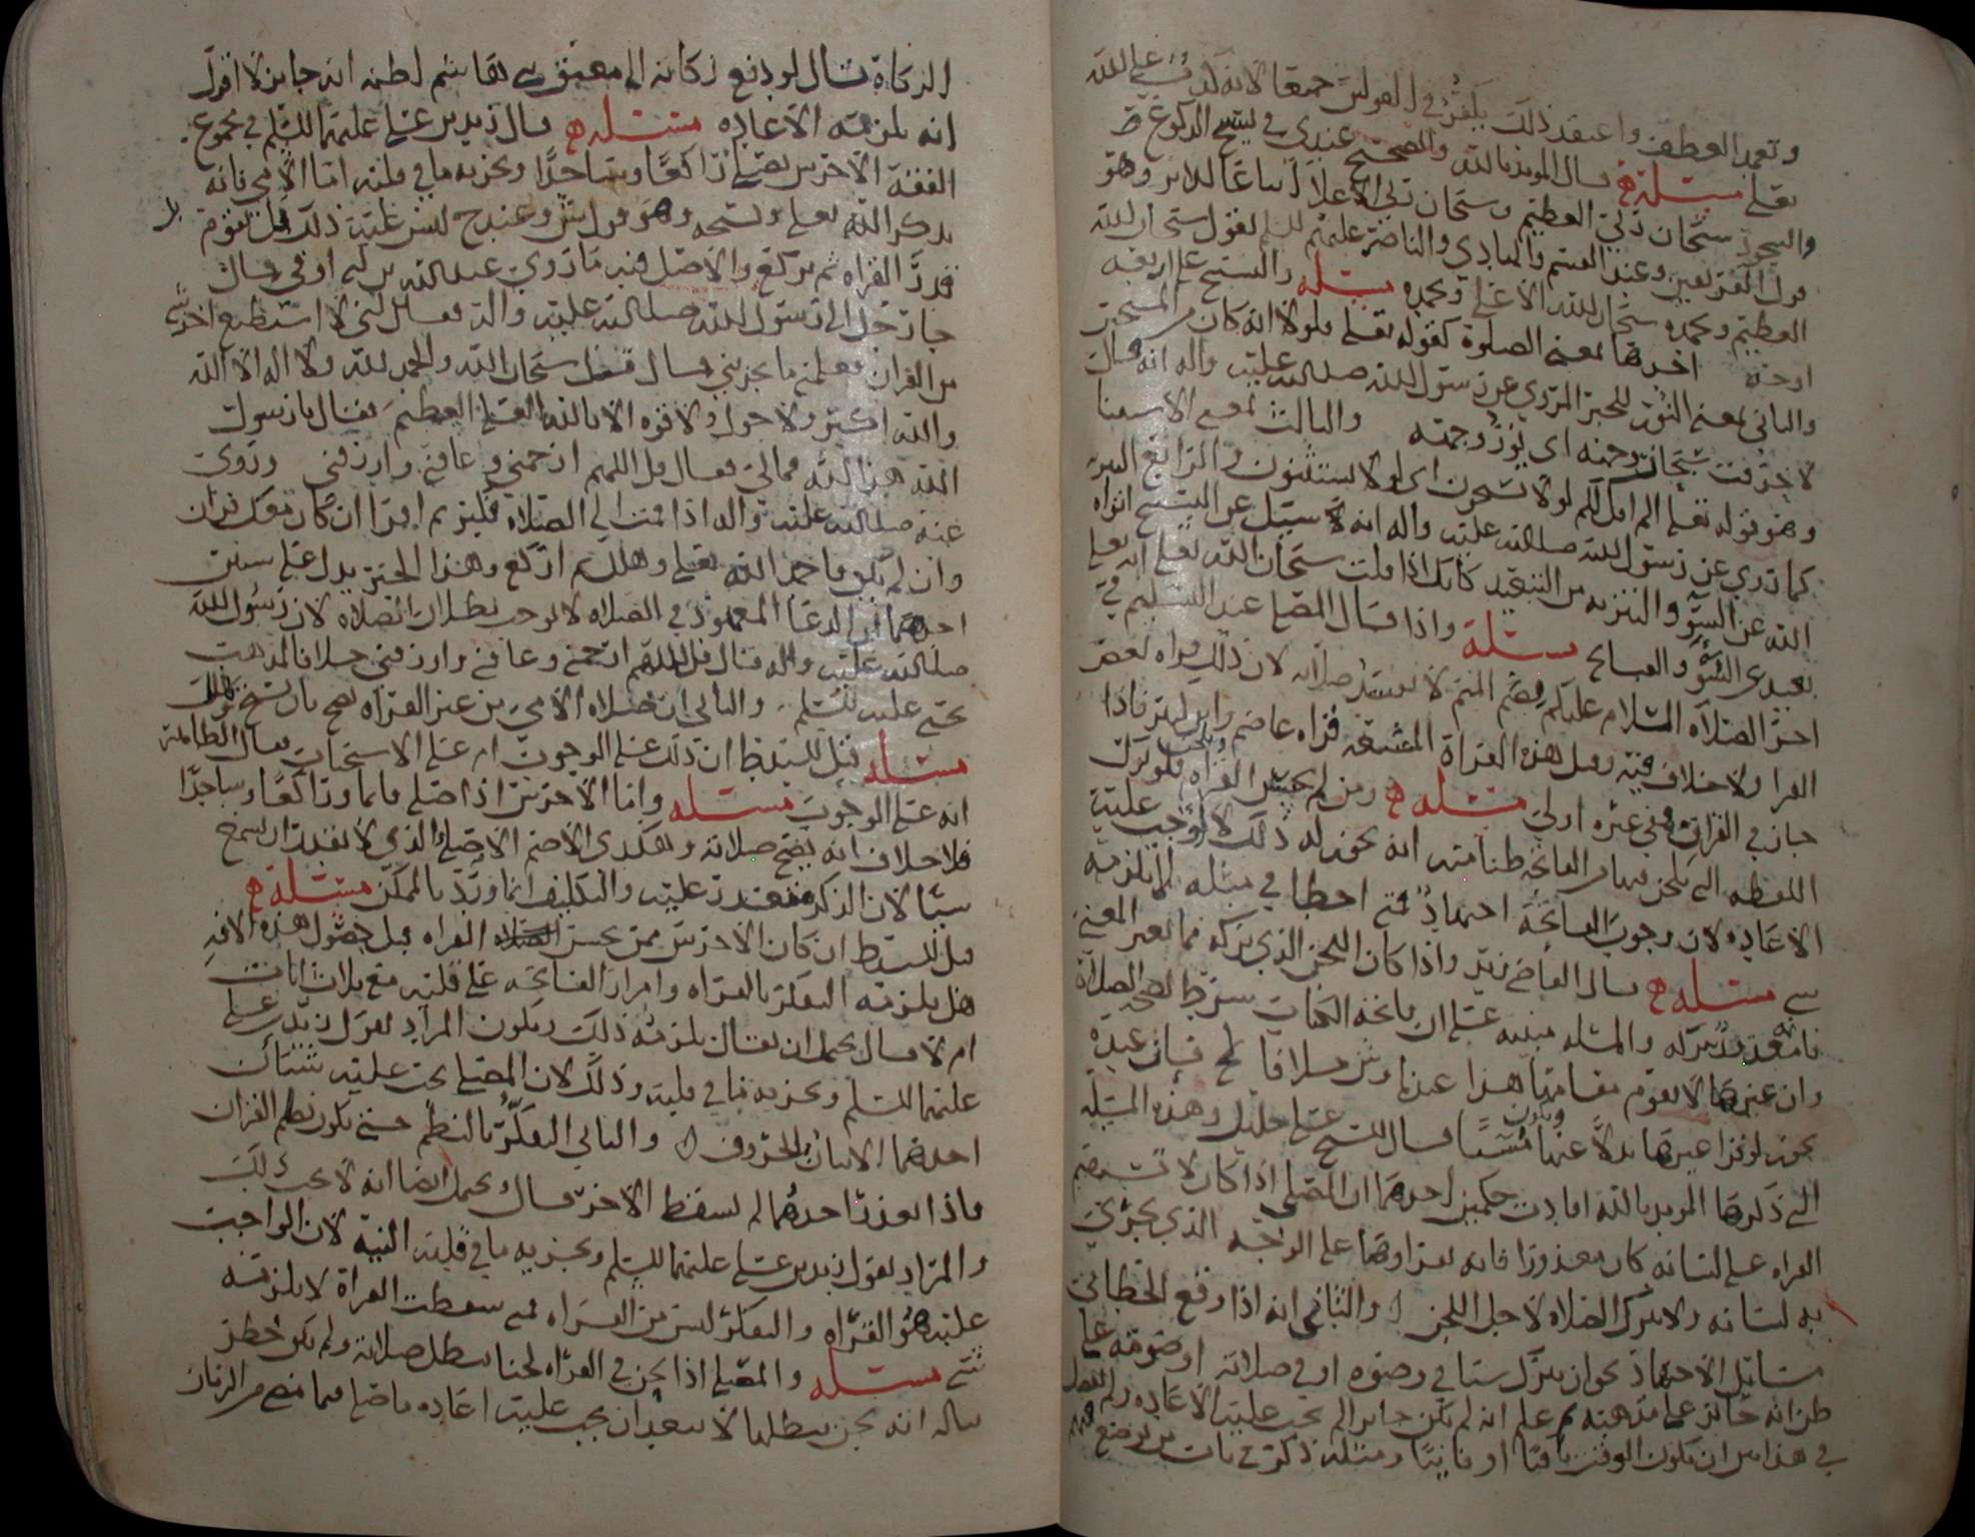 وتعمد العطف واعتقد ذلك يكفر في القولين جميعا لانه كذب على الله
تعالى مسئله قال المويد بالله والصحيح عندي في تسبيح الركوع
والسجود سبحان ربي العظيم وسبحان ربي الاعلا وهو
قول الفريقين وعند القسم والهادي والناصر عليهم السلم يقول سبحان الله
العظيم وبحمده سبحان الله الاعلى وبحمده مسئله والتسبيح على اربعة
اوجه احدها بمعنى الصلوة كقوله تعلى فلولا انه كان من المسبحين
والثاني بمعنى النور للخبر المروي عن رسول الله صلى الله عليه واله انه قال
لاحرقت سبحات وجهه اي نور وجهه والثالث بمعنى الاستثنا
وهو قوله تعلى الم اقل لكم لولا تسبحون اي لولا تستثنون والرابع التنزيه
كما روي عن رسول الله صلى الله عليه واله انه سئل عن التسبيح انزاه
الله عن السوء والتنزيه من التبعيد كانك اذا قلت سبحان الله تعلى
بعيد عن السوء والقبائح مسئلة واذا قال المصلي عند التسليم في
اخر الصلاة السلام عليكم بضم الميم لا تفسد صلاته لان ذلك قراه بعض
القرا ولا خلاف فيه ومثل هذه القراة قراه عاصم وابن كثير فاذا
جاز في القران ففي غيره اولى مسئله ومن لم يحسن القراه ويلحن فلو ترك
اللفظه التي يلحن فيها من الفاتحه ظنا منه انه يجوز له ذلك لا يوجب عليه
الاعاده لان وجوب الفاتحة اجتهاد فمتى اخطا في مثله لم يلزمه
شي مسئله قال القاضي زيد واذا كان اللحن الذي يتركه مما يغير المعنى
وتركه والمسئله مبنيه على ان فاتحه الكتاب شرط لصحه الصلاة
وان غيرها لا يقوم مقامها هذا عندنا وش خلافا لح فان عنده
يجوز لو قرا غيرها بدلا عنها ويكون مسيا قال الشيخ علي خليل وهذه المسئلة
التي ذكرها المويد بالله افادت حكمين احدهما ان المصلي اذا كان لا تستقيم
القراه على لسانه كان معذورا فانه يقراوها على الوجه الذي يجري
به لسانه ولا يترك الصلاه لاجل اللحن والثاني انه اذا وقع الخطا في
مسائل الاجتهاد نحو ان يترك شيا في وضوه او في صلاته او صومه على
ظن انه جائز على مذهبه ثم علم انه لم يكن جايزا لم يجب عليه الاعاده ولم يفصل
في هذا بين ان يكون الوقت باقيا او فايتا ومثله ذكره في باب من توضع فيهم
الزكاة فقال لو دفع زكاته الى معتق بني هاشم لظنه انه جايز لا اقول
انه يلزمه الاعاده مسئله قال زيد بن علي عليهما السلم في مجموع
الفقه الاخرس يصلي راكعا وساجدا ويجزيه ما في قلبه اما الامي فانه
يذكر الله تعلى ويسبحه وهو قول ش وعند ح ليس عليه ذلك بل يقوم
قدر القراه ثم يركع والاصل فيه ما روي عبدالله بن ابي اوفى قال
جا رجل الى رسول الله صلى الله عليه واله فقال اني لا استطيع اخذ شي
من القران فعلمني ما يجزيني فقال قل سبحان الله والحمد لله ولا اله الا الله
والله اكبر ولا حول ولا قوه الا بالله العلي العظيم فقال يا رسول
الله هذا لله فمالي فقال قل اللهم ارحمني وعافني وارزقني وروي
عنه صلى الله عليه واله اذا قمت الى الصلاه فكبر ثم اقرا ان كان معك قران
وان لم يكن فاحمد الله تعلى وهلل ثم اركع وهذا الخبر يدل على شيئين
احدهما ان الدعا في الصلاه لا يوجب بطلان الصلاه لان رسول الله
صلى الله عليه واله قال قل اللهم ارحمني وعافني وارزقني خلافا لمذهب
يحيى عليه السلم والثاني ان صلاه الامي من غير القراه تصح بان يسبح ويهلل
مسئله قيل للسيد ط ان ذلك على الوجوب ام على الاستحباب فقال الظاهر
انه على الوجوب مسئله واما الاخرس اذا صلى قايما وراكعا وساجدا
فلا خلاف انه يصح صلاته وهكذى الاصم الاصلخ الذي لا يقدر ان يسمع
شيا لان الذكر متعذر عليه والتكليف انما ورد بالممكن مسئلة
قيل للسيد ط ان كان الاخرس ممن يحسن القراه قبل حصول هذه الافه
هل يلزمه التفكر بالقراه وامرار الفاتحه على قلبه مع ثلاث ايات
ام لا قال يحتمل ان يقال يلزمه ذلك ويكون المراد بقول زيد بن علي
عليهما السلم ويجزيه ما في قلبه وذلك لان المصلي يجب عليه شيئان
احدهما الاتيان بالحروف والثاني التفكر بالنظم حتى يكون نظم القران
فاذا تعذر احدهما لم يسقط الاخر قال ويحتمل ايضا انه لا يجب ذلك
والمراد بقول زيد بن علي عليهما السلم ويجزيه ما في قلبه النية لان الواجب
عليه هو القراه والتفكر ليس من القراه فمتى سقطت القراة لا يلزمه
شي مسئله والمصلي اذا لحن في القراه لحنا يبطل صلاته ولم يكن خطر
بباله انه لحن يبطلها لا يبعد ان يجب عليه اعاده ما صلى فيما مضى من الزمان